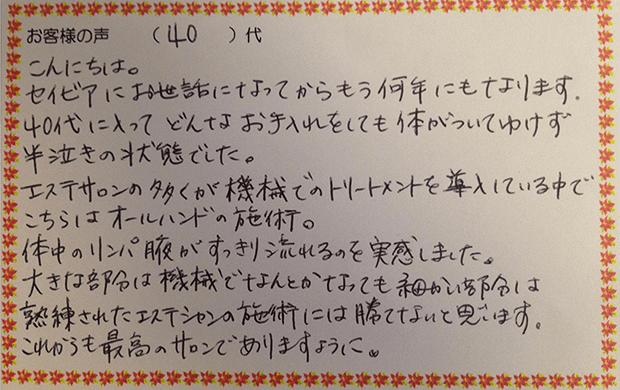 お客様の声 (40)代
こんにちは。
セイビアにお世話になってからもう何年にもなります。
40代に入ってどんなお手入れをしても体がついてゆけず
半泣きの状態でした。
エステサロンの多くが機械でのトリートメントを導入している中で
こちらはオールハンドの施術。
体中のリンパ腋がすっきり流れるのを実感しました。
大きな部分は機械でなんとかなっても細かい部分は
熟練されたエステシャンの施術には勝てないと思います。
これからも最高のサロンでありますように。